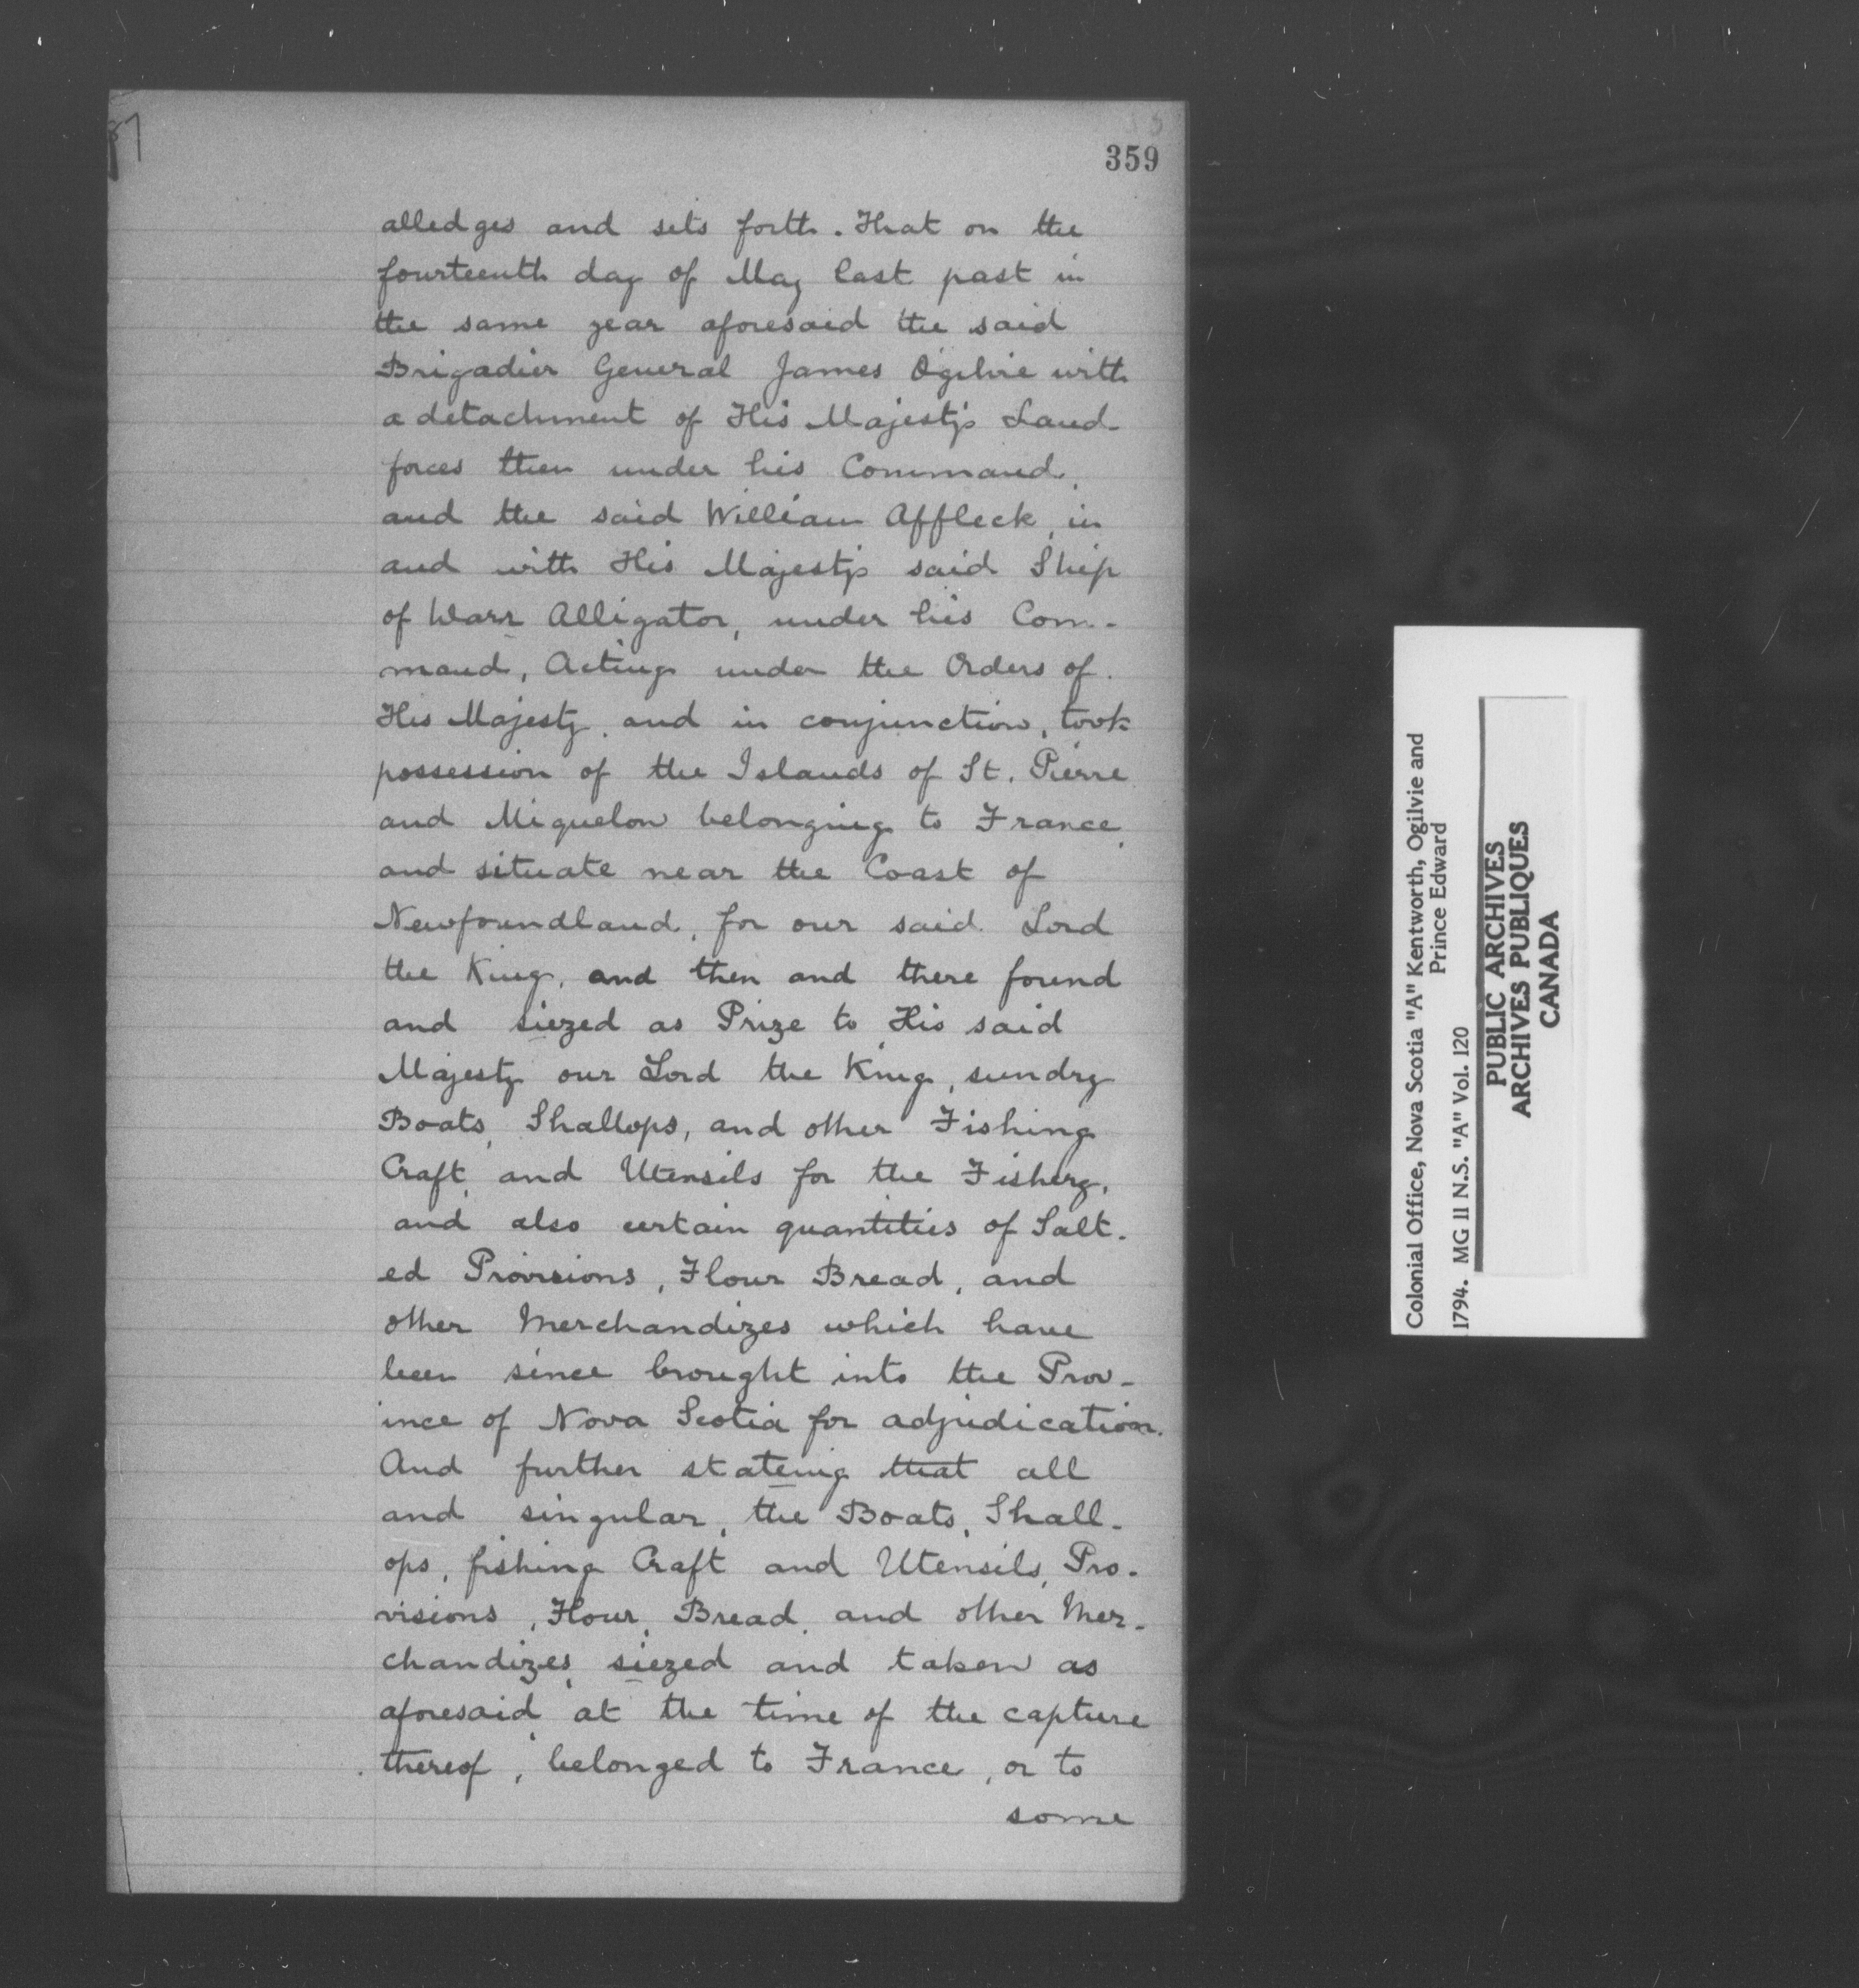 359
alledges and sets forth. That on the
fourteenth day of May last past in
the same year aforesaid the said
Brigadier General James Ogilvie with
a detachment of His Majesty's Land
forces then under his Command,
and the said William Affleck, in
and with His Majesty's said Ship
of Warr Alligator, under his Com-
mand, Acting under the Orders of
His Majesty, and in conjunction, took
possession of the Islands of St. Pierre
and Miquelon belonging to France,
and situate near the Coast of
Newfoundland, for our said Lord
the King, and then and there found
and siezed as Prize to His said
Majesty our Lord the King, sundry
Boats, Shallops, and other Fishing
Craft, and Utensils for the Fishery,
and also certain quantities of Salt-
ed Provisions, Flour Bread, and
other Merchandizes which have
been since brought into the Prov-
ince of Nova Scotia for adjudication.
And further stateing that all
and singular, the Boats, Shall-
ops, fishing Craft and Utensils, Pro-
visions, Flour, Bread, and other Mer-
chandizes, siezed and taken as
aforesaid, at the time of the capture
thereof, belonged to France, or to
some
Colonial Office, Nova Scotia "A" Kentworth, Ogilvie and
Prince Edward
1794. MG 11 N.S. "A" Vol. 120
PUBLIC ARCHIVES
ARCHIVES PUBLIQUES
CANADA